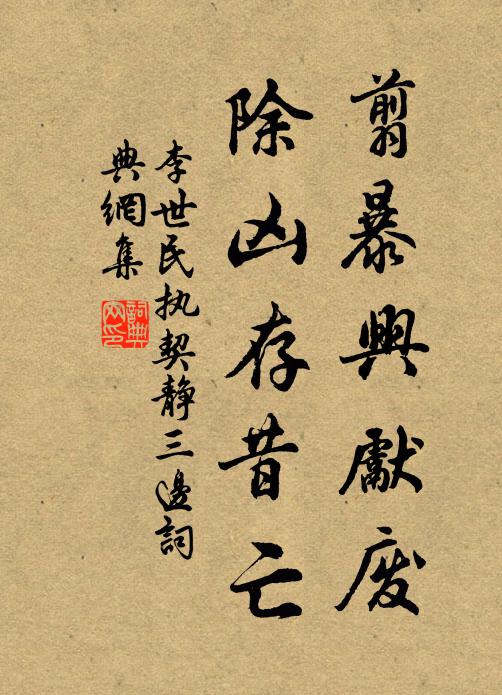 翦暴興獻废
除凶存昔亡
李世民执契静三邊詞
典網集
詞典
网印